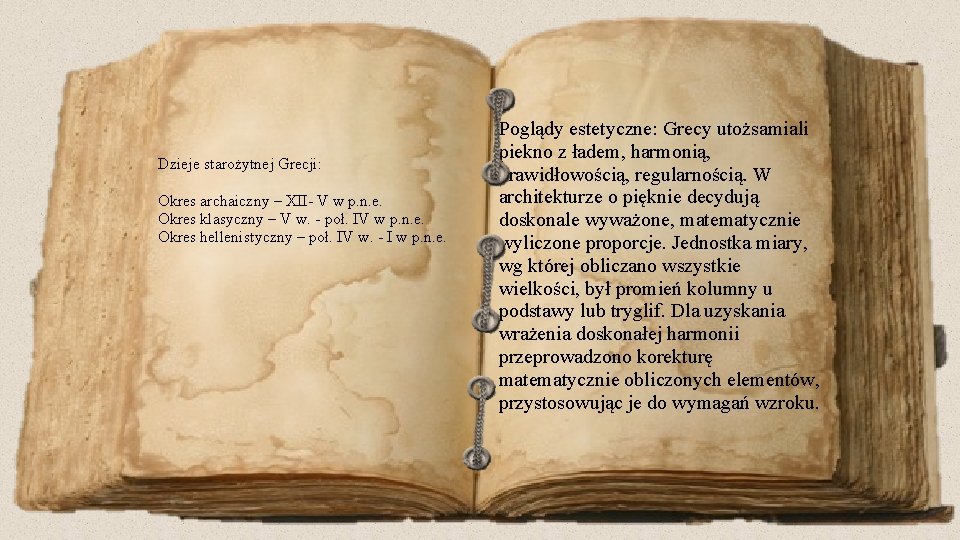 Dzieje starożytnej Grecji:
Okres archaiczny – XII- V w p.n.e.
Okres klasyczny – V w. - poł. IV w p.n.e.
Okres hellenistyczny – poł. IV w. - I w p.n.e.
Poglądy estetyczne: Grecy utożsamiali
piekno z ładem, harmonią,
prawidłowością, regularnością. W
architekturze o pięknie decydują
doskonale wyważone, matematycznie
wyliczone proporcje. Jednostka miary,
wg której obliczano wszystkie
wielkości, był promień kolumny u
podstawy lub tryglif. Dla uzyskania
wrażenia doskonałej harmonii
przeprowadzono korekturę
matematycznie obliczonych elementów,
przystosowując je do wymagań wzroku.